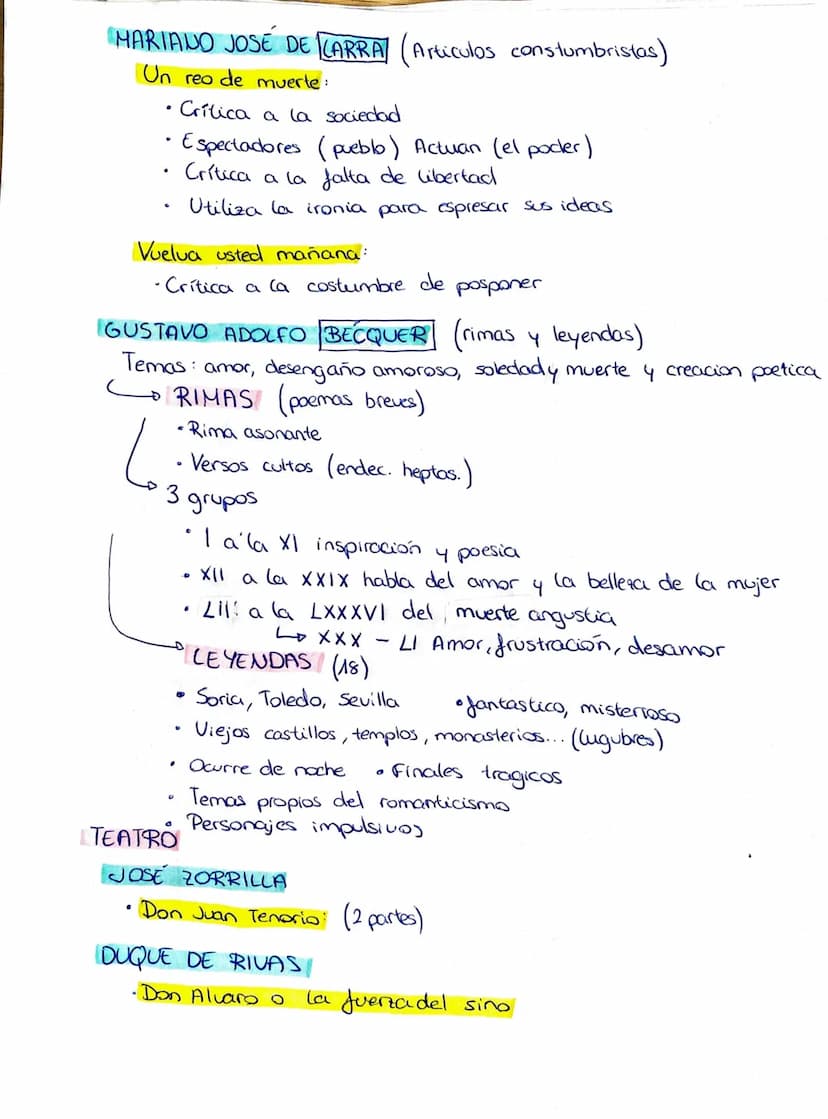 MARIANO JOSÉ DE LARRA (Articulos constumbristas)
Un reo de muerte:
• Crítica a la sociedad
• Espectadores (pueblo) Actuan (el poder)
• Crítica a la falta de libertad
• Utiliza la ironia para espresar sus ideas
Vuelva usted mañana:
• Crítica a la costumbre de posponer
GUSTAVO ADOLFO BECQUER (rimas y leyendas)
Temas: amor, desengaño amoroso, soledad y muerte y creacion poetica
→ RIMAS (poemas breves)
• Rima asonante
• Versos cultos (endec. heptas.)
→ 3 grupos
• I a la XI inspiración y poesia
• XII a la XXIX habla del amor y la belleza de la mujer
• LII a la LXXXVI del muerte angustia
↳ XXX - LI Amor, frustración, desamor
→ LEYENDAS (18)
• Soria, Toledo, Sevilla • fantastico, misterioso
• Viejos castillos, templos, monasterios... (lugubres)
• Ocurre de noche • Finales tragicos
• Temas propios del romanticismo
• Personajes impulsivos
TEATRO
JOSÉ ZORRILLA
• Don Juan Tenorio: (2 partes)
DUQUE DE RIVAS
• Don Alvaro o la fuerza del sino